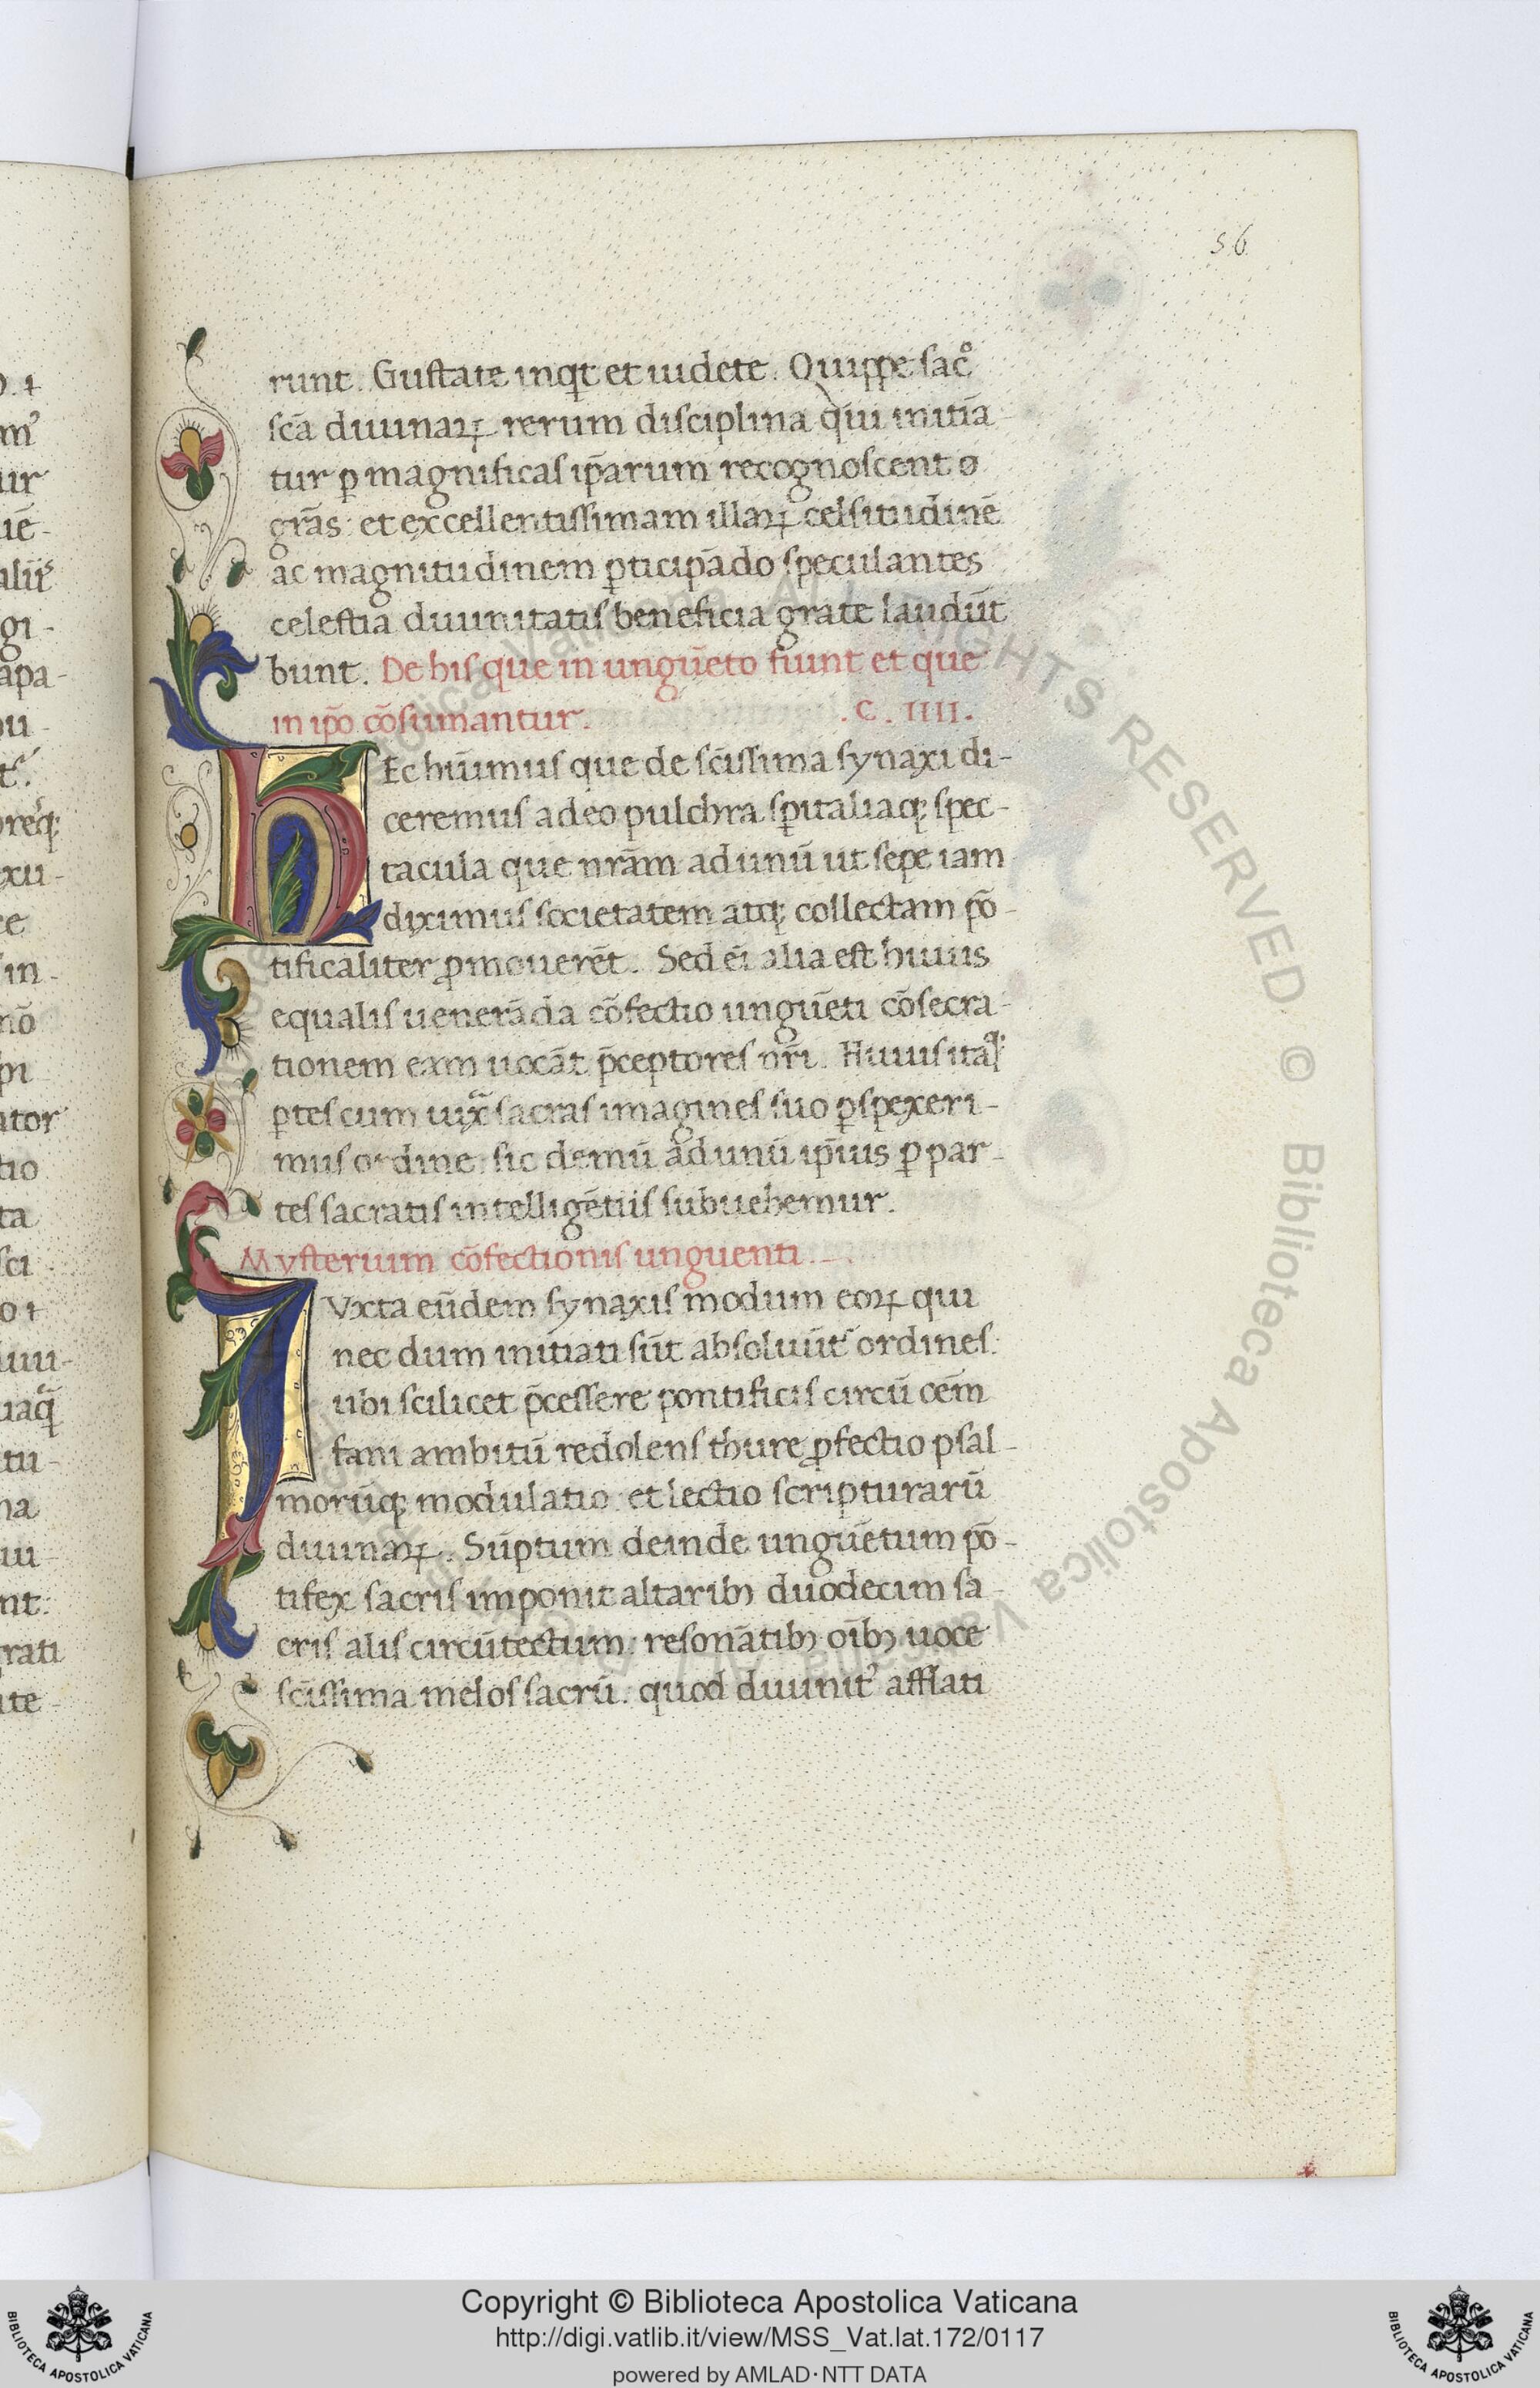 56
runt. Gustate inqt et uidete. Quippe sac̊
scā diuinaꝝ rerum disciplina q̀ui initiā
tur ꝑ magnificas ip̄arum recognoscent ø
grās: et excellentissimam illaꝝ celsitudinē
ac magnitudinem ꝑticipādo speculantes
celestia diuinitatis beneficia grate laudūt
bunt. De his que in unguēto fiunt et que
in ip̄o cōsumantur. .C. IIII.
hEc hūimus que de sc̄issima synaxi di-
ceremus adeo pulchra sꝑitaliaqꝫ spec-
tacula que nrām ad unū ut sepe iam
diximus societatem atqꝫ collectam pō-
tificaliter ꝓmouerēt. Sed eī alia est huius
equalis uenerāda cōfectio unguēti cōsecra-
tionem exm uocāt p̄ceptores nr̄i. Huius itaqꝫ
ꝑtes cum uixͣ sacras imagines suo ꝑspexeri-
mus ordine: sic demū ad unū ip̄ius ꝑ par-
tes sacratis intelligētiis subuehemur.
Mysterium cōfectionis unguenti.
IVxta eūdem synaxis modum eoꝝ qui
nec dum initiati sūt absoluūt᷑ ordines:
ubi scilicet p̄cessere pontificis circū cēm
fani ambitū redolens thure ꝓfectio psal-
morūqꝫ modulatio: et lectio scripturarū
diuinaꝝ. Sūptum deinde unguētum pō-
tifex sacris imponit altaribꝫ duodecim sa-
cris alis circūtectum: resonātibꝫ oībꝫ uoce
sc̄issima melos sacrū: quod diuinit᷑ afflati
Copyright © Biblioteca Apostolica Vaticana
http://digi.vatlib.it/view/MSS_Vat.lat.172/0117
powered by AMLAD·NTT DATA